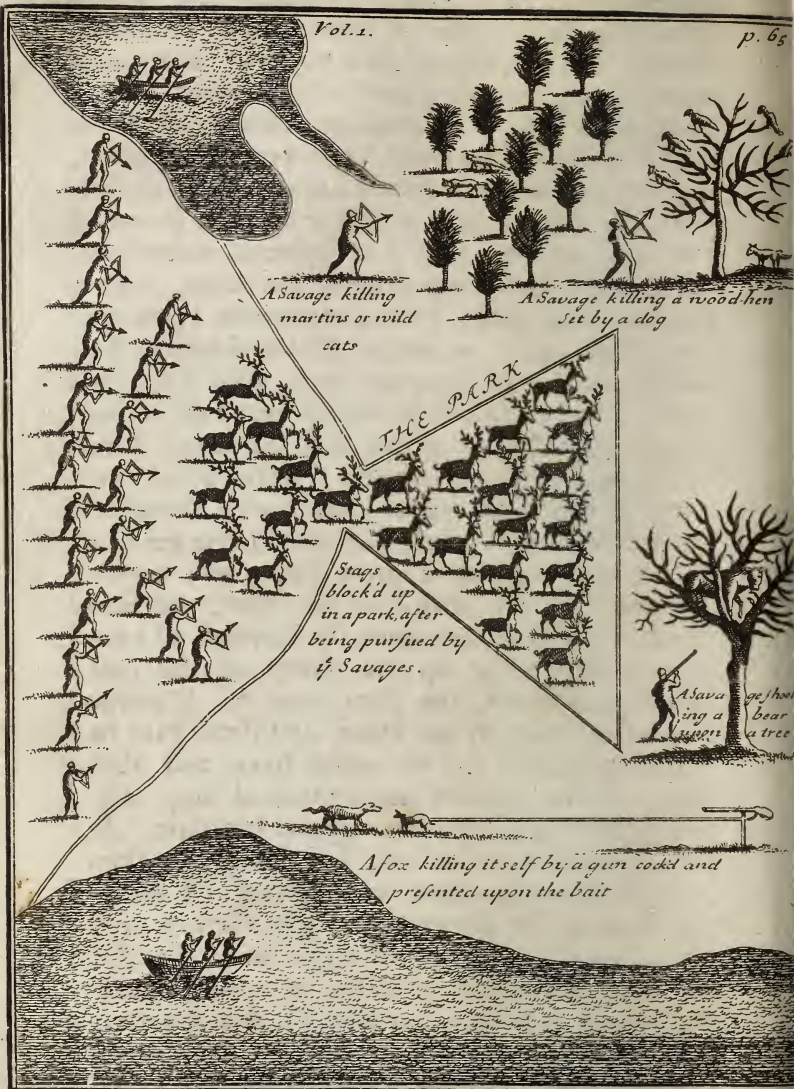 Vol. 1.
p. 65
A Savage killing
martins or wild
cats
A Savage killing a wood-hen
set by a dog
THE PARK
Stags
block'd up
in a park, after
being pursued by
yͤ Savages.
A Savage shoot
ing a bear
upon a tree
A fox killing itself by a gun cock'd and
presented upon the bait